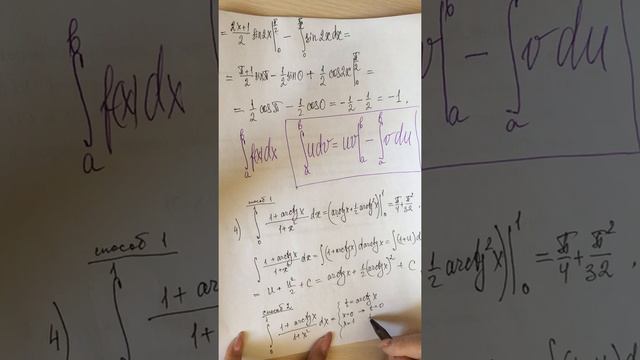 = \frac{2x+1}{2} sin2x |_0^{\frac{π}{2}} - ∫_0^{\frac{π}{2}} sin2x dx =
= \frac{π+1}{2} sinπ - \frac{1}{2} sin0 + \frac{1}{2} cos2x |_0^{\frac{π}{2}} =
= \frac{1}{2} cosπ - \frac{1}{2} cos0 = -\frac{1}{2} - \frac{1}{2} = -1.
∫_a^b f(x)dx ∫_a^b u dv = uv |_a^b - ∫_a^b v du
способ 1
4) ∫_0^1 \frac{1+arctgx}{1+x^2} dx = (arctgx + \frac{1}{2} arctg^2x) |_0^1 = \frac{π}{4} + \frac{π^2}{32}.
∫ \frac{1+arctgx}{1+x^2} dx = ∫(1+arctgx) darctgx = ∫(1+u)d
= u + \frac{u^2}{2} + C = arctgx + \frac{1}{2}(arctgx)^2 + C
способ 2
∫_0^1 \frac{1+arctgx}{1+x^2} dx = { t = arctgx
x=0 → t=0
x=1